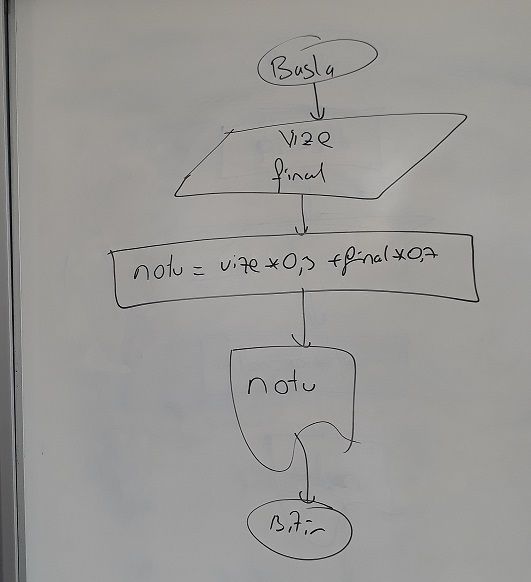 Basla
Vize
final
notu = vize*0,3 + final*0,7
notu
Bitir